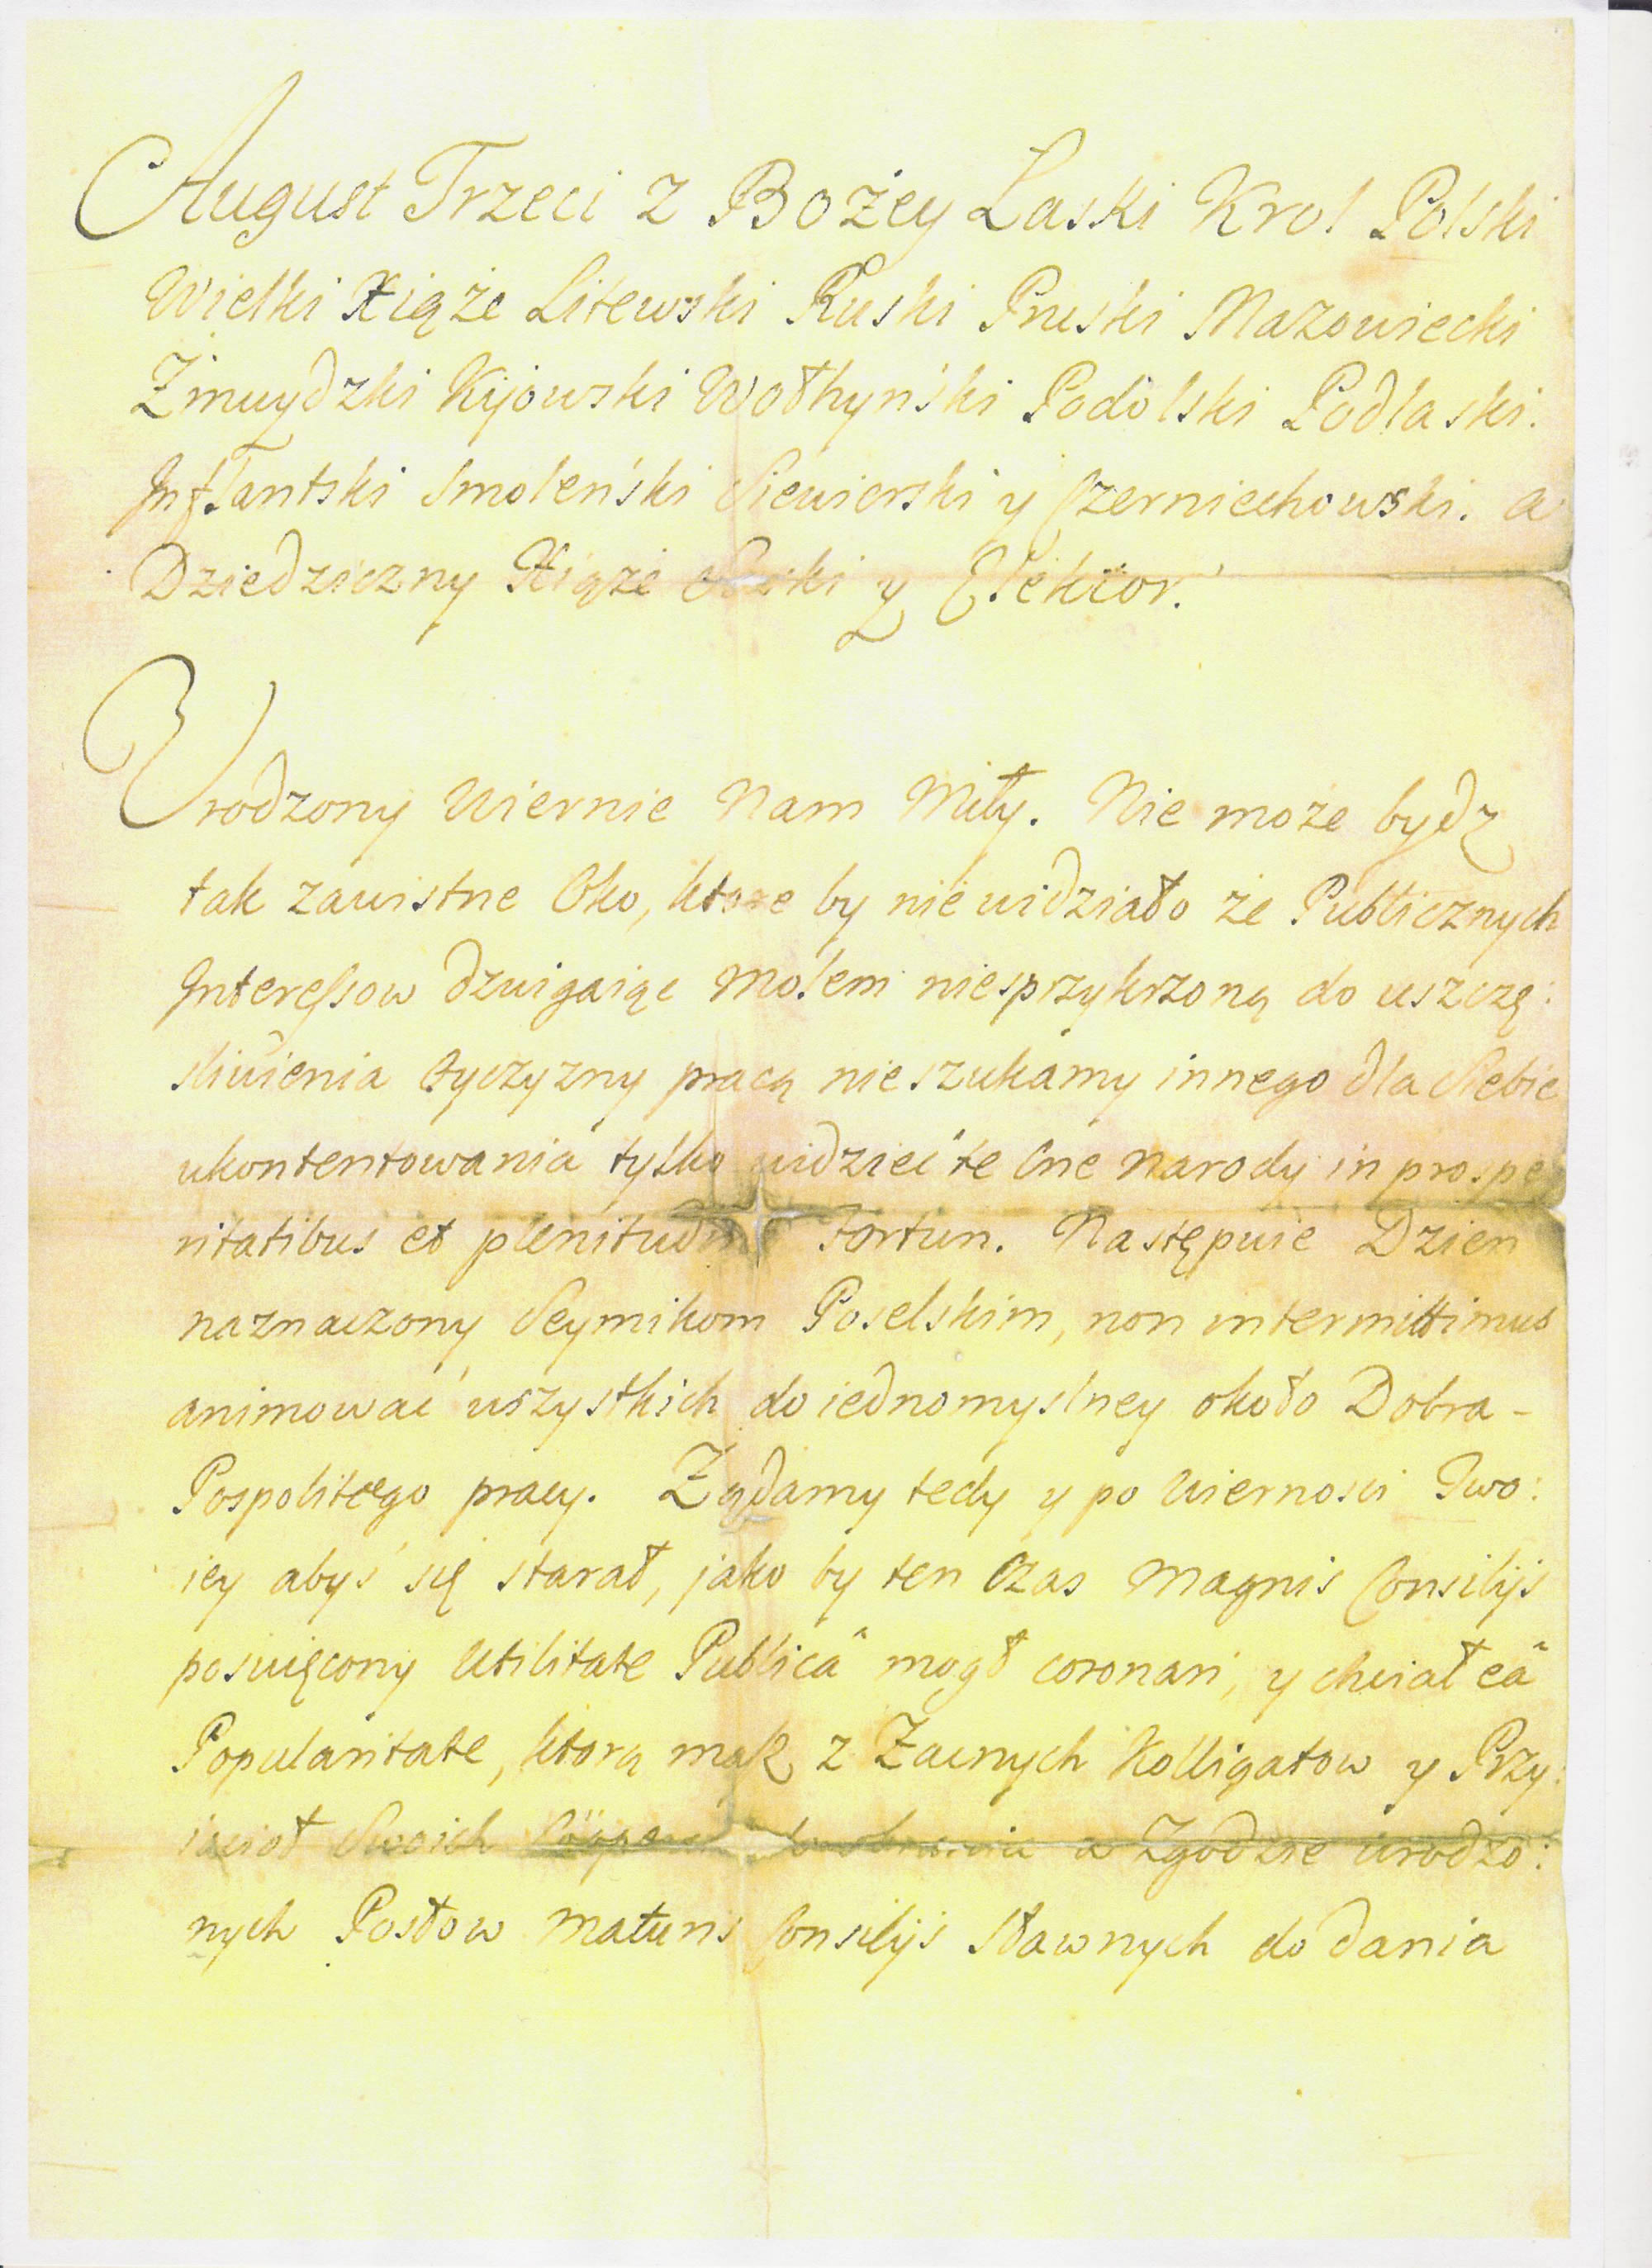 August Trzeci z Bożey Laski Krol Polski
Wielki Xiąże Litewski Ruski Pruski Mazowiecki
Żmuydzki Kijowski Wołhyński Podolski Podlaski.
Inflantski Smoleński Siewierski y Czerniechowski. a
Dziedziczny Xiąże Saski y Elektor.
Urodzony Wiernie Nam Miły. Nie może bydz
tak zawistne Oko, ktore by nie widziało że Publicznych
Interessow dzwigaiąc Molem niesprzykrzoną do uszczę:
sliwienia Oyczyzny pracą nie szukamy innego dla Siebie
ukontentowania tylko widzieć te One Narody in prospe
ritatibus et plenitudine Fortun. Następuie Dzien
naznaczony Seymikom Poselskim, non intermittimus
animować wszystkich do iednomyslney około Dobra -
Pospolitego pracy. Żądamy tedy y po Wiernosci Two:
iey abyś się starał, jako by ten Czas Magnis Consilijs
poswięcony Utilitate Publicâ mogł coronari, y chciał eâ
Popularitate, ktorą masz z Zacnych Kolligatow y Przy:
iacioł Swoich w Zgodzie urodzo:
nych Posłow Maturis Consilijs Sławnych do dania